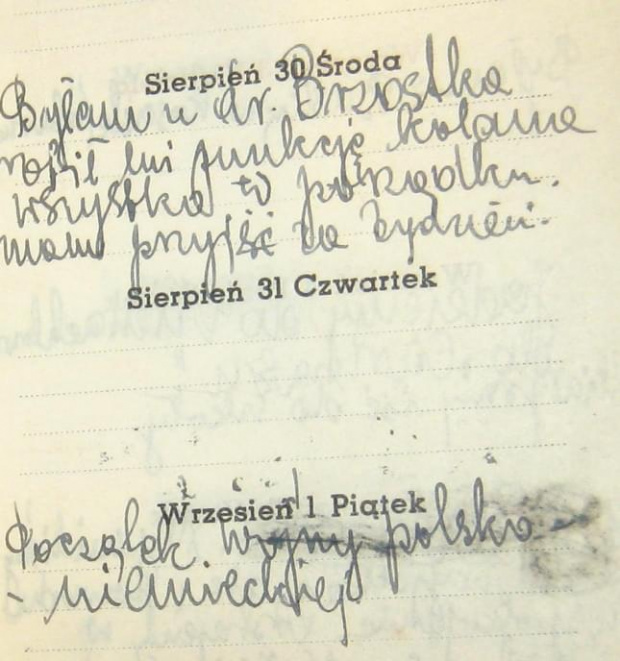 Sierpień 30 Środa
Byłam u dr. Drzastka
robił mi punkcję kolana
wszystko w porządku.
mam przyjść za tydzień.
Sierpień 31 Czwartek
Wrzesień 1 Piątek
Początek wojny polsko-
- niemieckiej